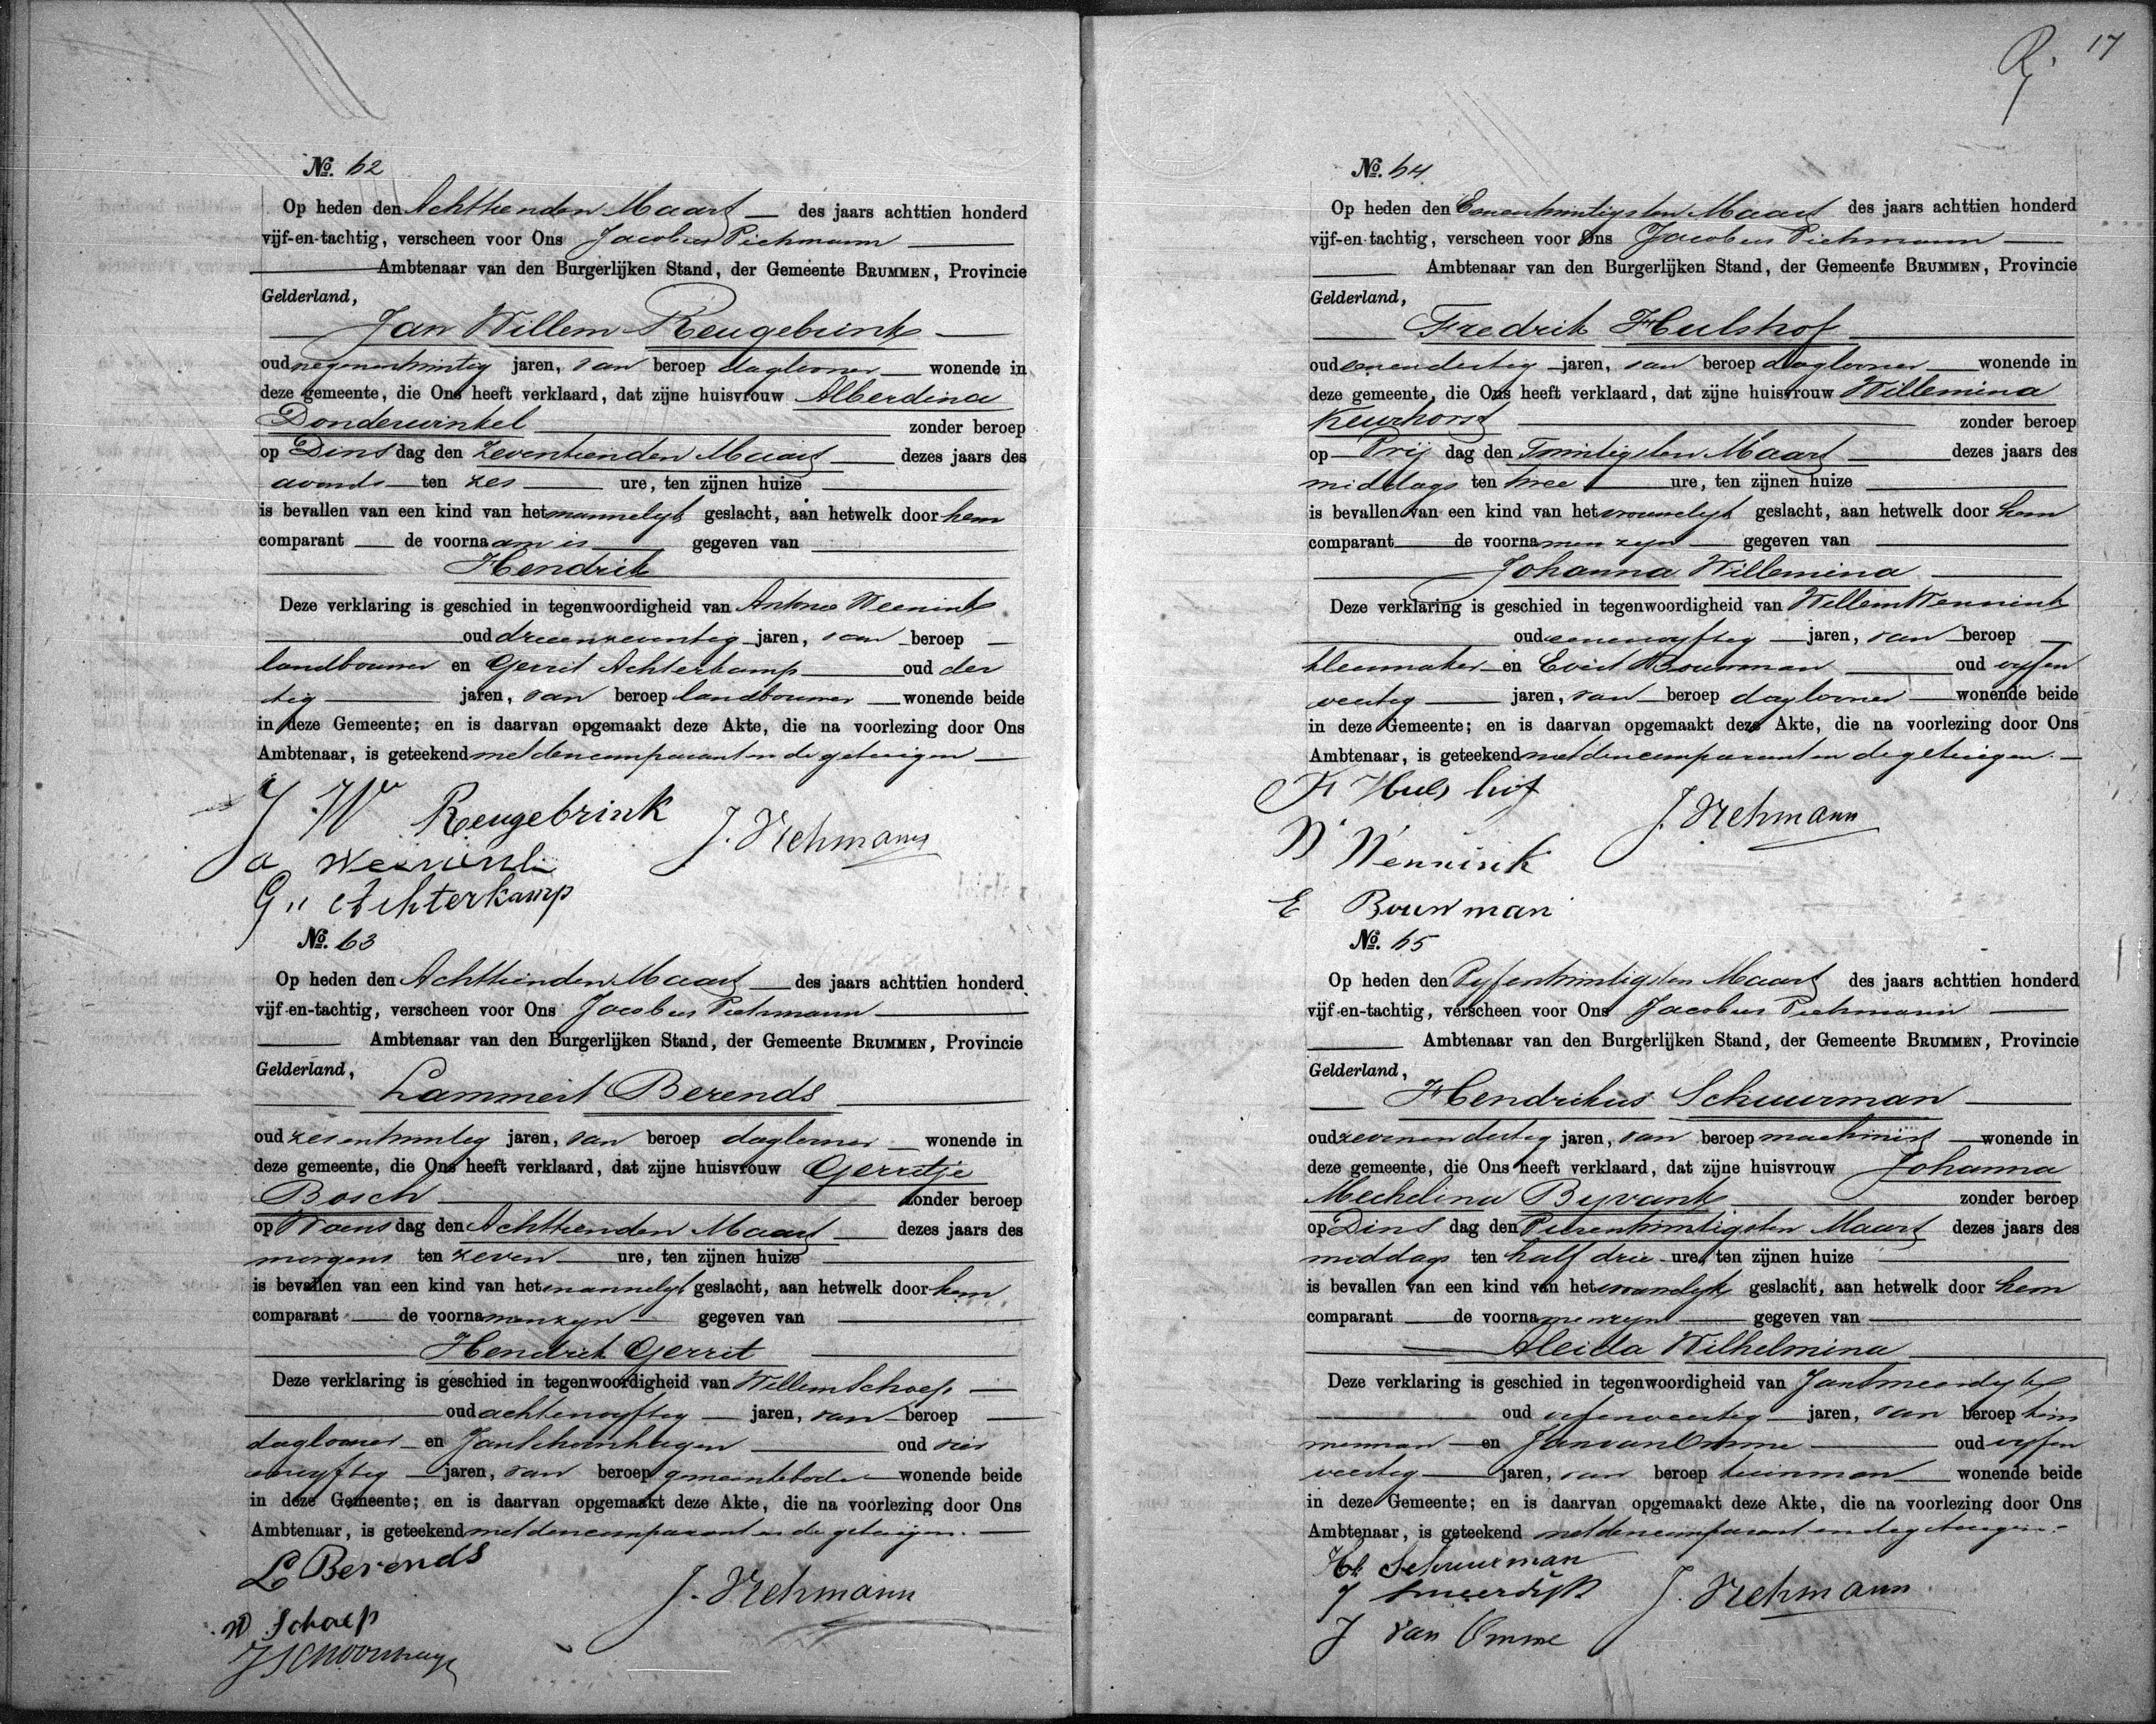 №. 62
Op heden den Achttienden Maart des jaars achttien honderd
vijf-en-tachtig, verscheen voor Ons Jacobus Viehmann
Ambtenaar van den Burgerlijken Stand, der Gemeente BRUMMEN, Provincie
Gelderland,
Jan Willem Reugebrink
oud negenentwintig jaren, van beroep daglooner wonende in
deze gemeente, die Ons heeft verklaard, dat zijne huisvrouw Alberdina
Donderwinkel zonder beroep
op Dinsdag den zeventienden Maart dezes jaars des
avonds ten zes ure, ten zijnen huize
is bevallen van een kind van het mannelijk geslacht, aan hetwelk door hem
comparant de voornaam is gegeven van
Hendrik
Deze verklaring is geschied in tegenwoordigheid van Antonie Weenink
oud drieenzeventig jaren, van beroep
landbouwer en Gerrit Achterkamp oud der
tig jaren, van beroep landbouwer wonende beide
in deze Gemeente; en is daarvan opgemaakt deze Akte, die na voorlezing door Ons
Ambtenaar, is geteekend met den comparant en de getuigen
J W Reugebrink
J. Viehmann
a Weenink
G,, Achterkamp
№. 63
Op heden den Achttienden Maart des jaars achttien honderd
vijf-en-tachtig, verscheen voor Ons Jacobus Viehmann
Ambtenaar van den Burgerlijken Stand, der Gemeente BRUMMEN, Provincie
Gelderland,
Lammert Berends
oud zesentwintig jaren, van beroep daglooner wonende in
deze gemeente, die Ons heeft verklaard, dat zijne huisvrouw Gerritje
Bosch zonder beroep
op Woensdag den Achttienden Maart dezes jaars des
morgens ten zeven ure, ten zijnen huize
is bevallen van een kind van het mannelijk geslacht, aan hetwelk door hem
comparant de voornamen zijn gegeven van
Hendrik Gerrit
Deze verklaring is geschied in tegenwoordigheid van Willem Schoep
oud achtenvyftig jaren, van beroep
daglooner en Jan Schoonhagen oud vier
envyftig jaren, van beroep gemeentebode wonende beide
in deze Gemeente; en is daarvan opgemaakt deze Akte, die na voorlezing door Ons
Ambtenaar, is geteekend met den comparant en de getuigen.
L Berends
J. Viehmann
W Schoep
J Schoonhage
17
№. 64
Op heden den Eenentwintigsten Maart des jaars achttien honderd
vijf-en-tachtig, verscheen voor Ons Jacobus Viehmann
Ambtenaar van den Burgerlijken Stand, der Gemeente BRUMMEN, Provincie
Gelderland,
Fredrik Hulshof
oud eenendertig jaren, van beroep daglooner wonende in
deze gemeente, die Ons heeft verklaard, dat zijne huisvrouw Willemina
Keurhorst zonder beroep
op Vrijdag den Twintigsten Maart dezes jaars des
middags ten twee ure, ten zijnen huize
is bevallen van een kind van het vrouwelijk geslacht, aan hetwelk door hem
comparant de voornamen zijn gegeven van
Johanna Willemina
Deze verklaring is geschied in tegenwoordigheid van Willem Wennink
oud eenenvyftig jaren, van beroep
kleermaker en Evert Bouwman oud vyfen
veertig jaren, van beroep daglooner wonende beide
in deze Gemeente; en is daarvan opgemaakt deze Akte, die na voorlezing door Ons
Ambtenaar, is geteekend met den comparant en de getuigen.
F Hulshof
J. Viehmann
W Wennink
E Bouwman
№. 65
Op heden den Vyfentwintigsten Maart des jaars achttien honderd
vijf-en-tachtig, verscheen voor Ons Jacobus Viehmann
Ambtenaar van den Burgerlijken Stand, der Gemeente BRUMMEN, Provincie
Gelderland,
Hendrikus Schuurman
oud zevenendertig jaren, van beroep machinist wonende in
deze gemeente, die Ons heeft verklaard, dat zijne huisvrouw Johanna
Mechelina Byvank zonder beroep
op Dinsdag den Vierentwintigsten Maart dezes jaars des
middags ten half drie ure, ten zijnen huize
is bevallen van een kind van het vrouwelijk geslacht, aan hetwelk door hem
comparant de voornamen zijn gegeven van
Aleida Wilhelmina
Deze verklaring is geschied in tegenwoordigheid van Jan Smeerdijk
oud vyfenveertig jaren, van beroep tim
merman en Jan van Omme oud vyfen
veertig jaren, van beroep tuinman wonende beide
in deze Gemeente; en is daarvan opgemaakt deze Akte, die na voorlezing door Ons
Ambtenaar, is geteekend met den comparant en de getuigen.
Hk Schuurman
J Smeerdijk
J. Viehmann
J van Omme